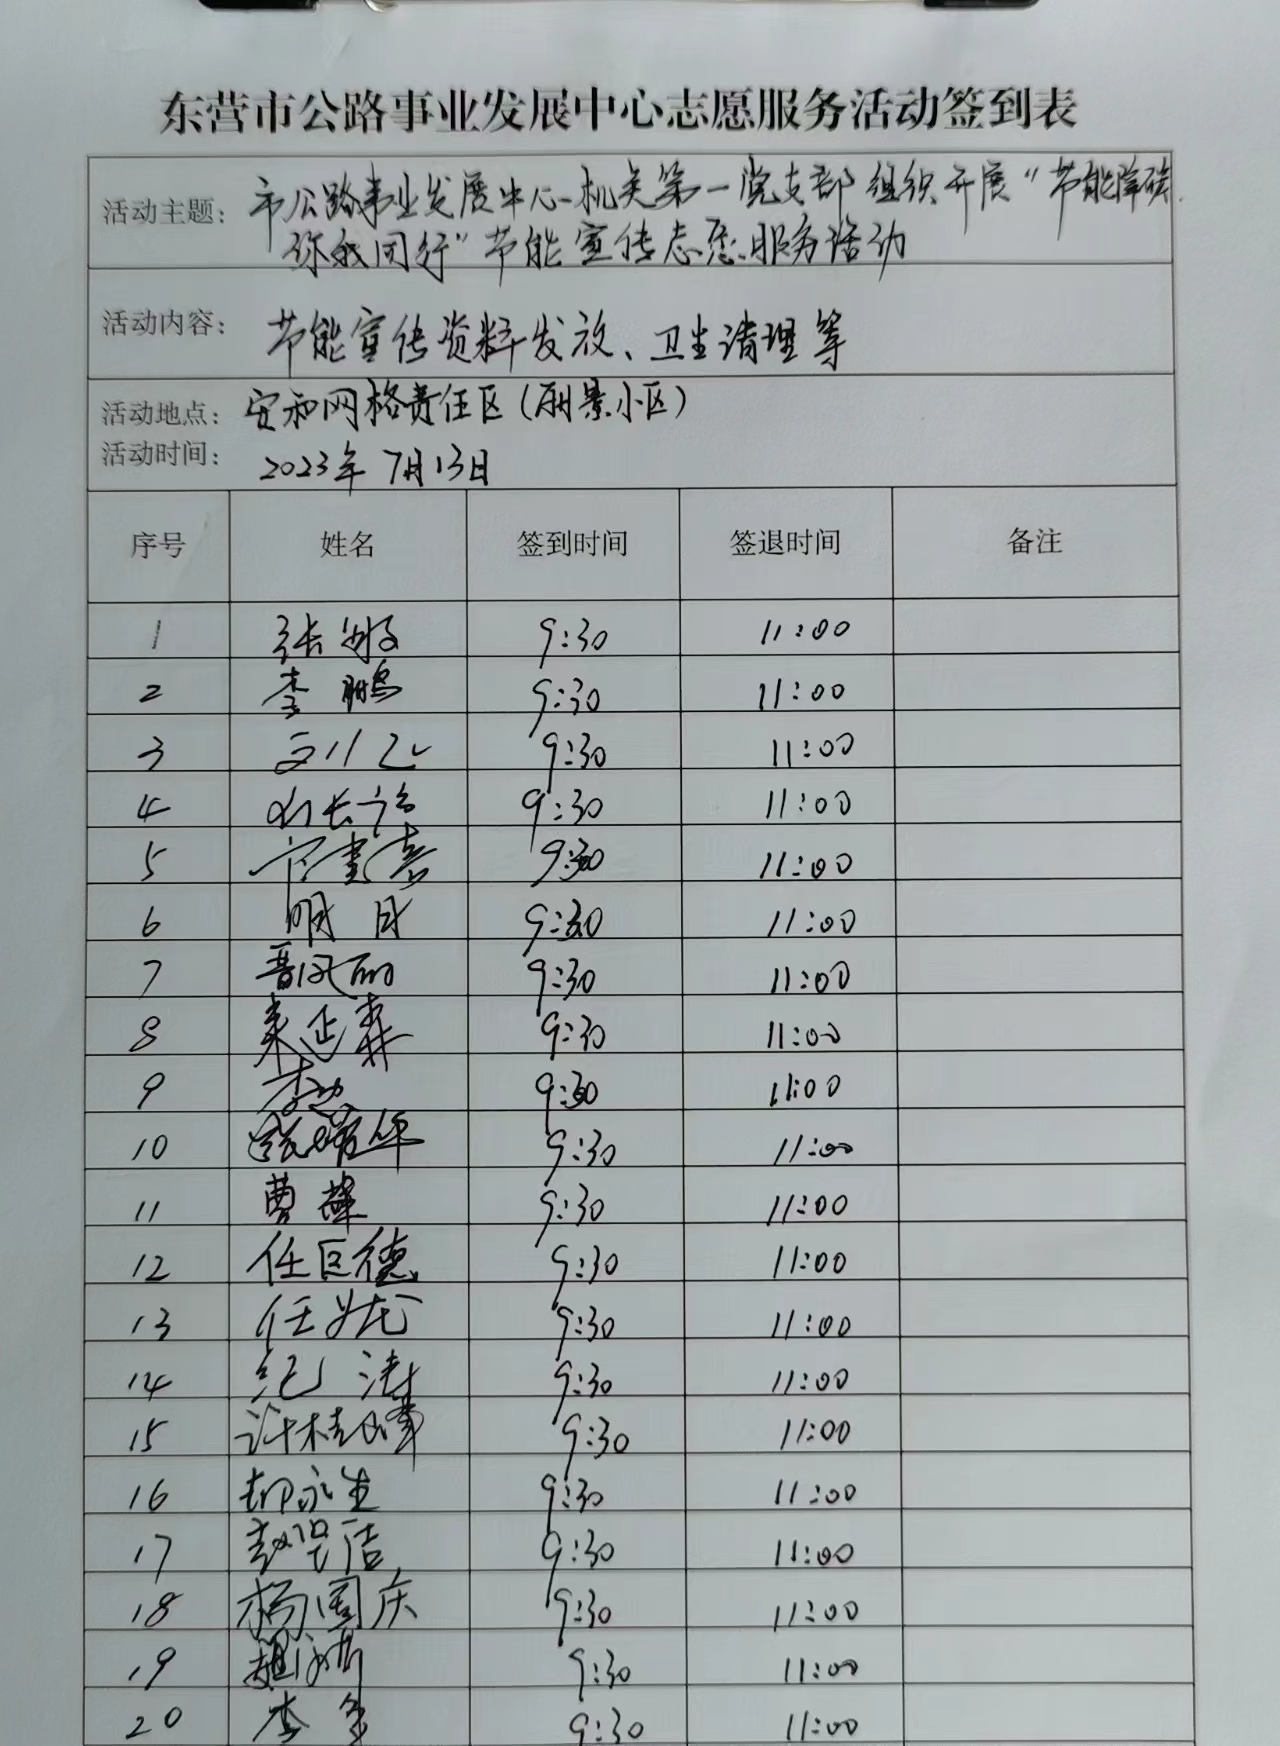 东营市公路事业发展中心志愿服务活动签到表
活动主题: 市公路事业发展中心机关第一党支部组织开展“节能降碳
你我同行”节能宣传志愿服务活动
活动内容: 节能宣传资料发放、卫生清理等
活动地点: 安和网格责任区(丽景小区)
活动时间: 2023年7月13日
序号 姓名 签到时间 签退时间 备注
1 张 9:30 11:00
2 李鹏 9:30 11:00
3 9:30 11:00
4 9:30 11:00
5 9:30 11:00
6 明月 9:30 11:00
7 9:30 11:00
8 9:30 11:00
9 李 9:30 11:00
10 9:30 11:00
11 曹 9:30 11:00
12 任巨德 9:30 11:00
13 任 9:30 11:00
14 纪涛 9:30 11:00
15 许桂 9:30 11:00
16 永生 9:30 11:00
17 赵 9:30 11:00
18 杨国庆 9:30 11:00
19 9:30 11:00
20 李 9:30 11:00